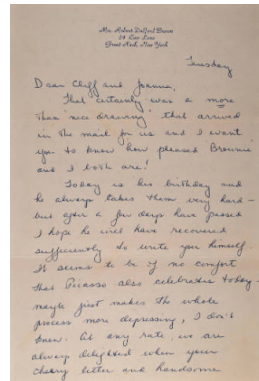 Mrs. Robert Delford Brown
24 Cow Lane
Great Neck, New York
Tuesday
Dear Cliff and Joanne,
That certainly was a more
than "nice drawing" that arrived
in the mail for us and I want
you to know how pleased Brownie
and I both are!
Today is his birthday and
he always takes them very hard -
but after a few days have passed
I hope he will have recovered
sufficiently to write you himself.
It seems to be of no comfort
that Picasso also celebrates today -
maybe just makes the whole
process more depressing, I don't
know. At any rate, we are
always delighted when your
cheery letter and handsome